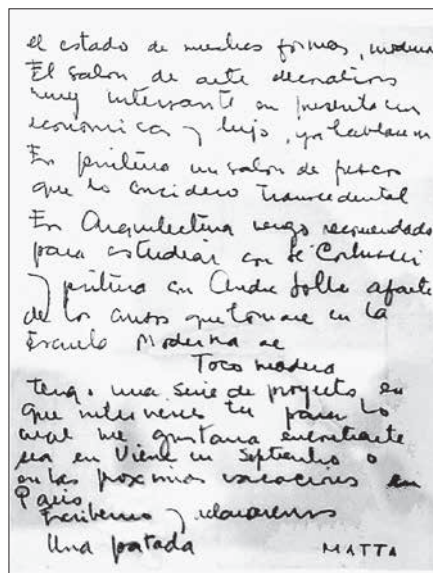 el estado de muchas formas, moderna
El salon de arte decorativo
muy interesante en presentacion
economica y lujo, ya hablaremos
En pintura un salon de frescos
que lo considero trascedental
En Arquitectura vengo recomendado
para estudiar con Le Corbusier
y pintura con Andre Lothe aparte
de los cursos que tomare en la
Escuela Moderna de
Toco madera
tengo una serie de proyectos en
que intervienes tu para lo
cual me gustaria encontrarte
sea en Viena en Septiembre o
en las proximas vacaciones en
Paris
Escribenos y
Una patada MATTA